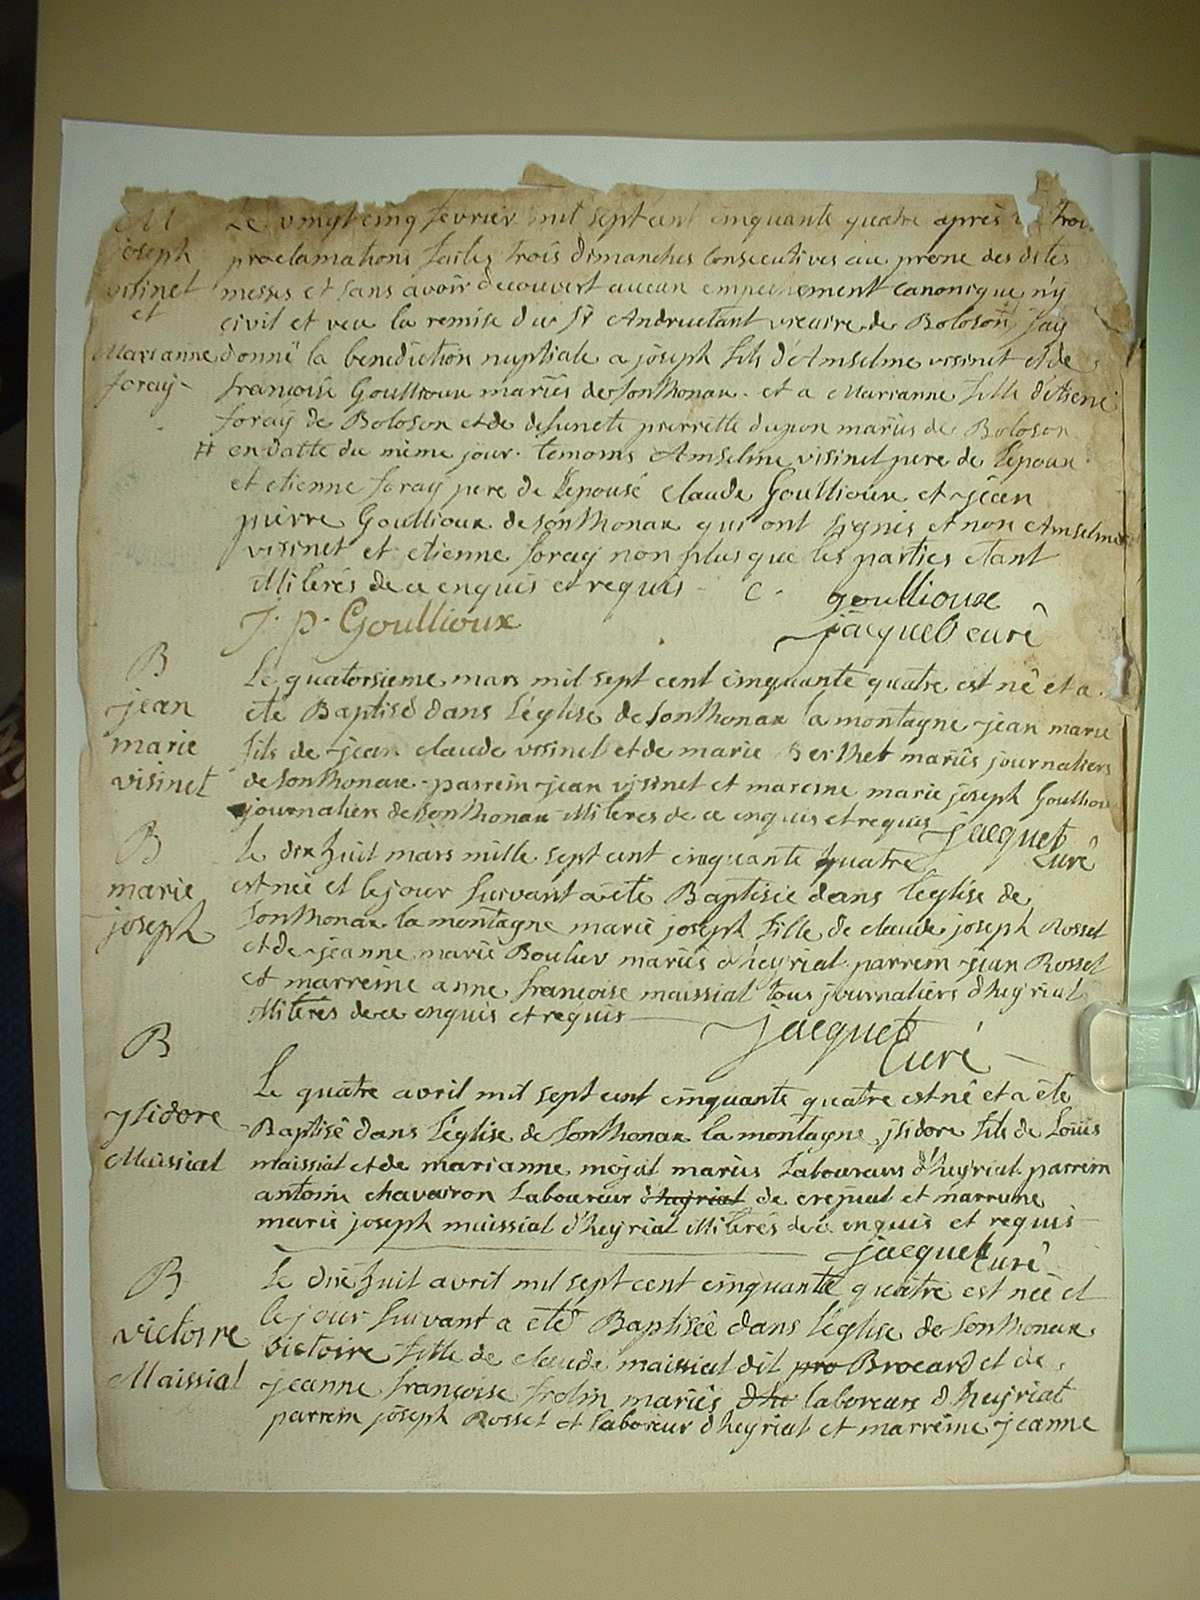 M
joseph
visinet
et
Marianne
foray
Le vingt cinq fevrier mil sept cent cinquante quatre après trois
proclamations faites trois dimanches consecutives au prone des dites
messes et sans avoir decouvert aucun empechement canonique n'y
civil et veu la remise du Sr Andruetant vicaire de Boloson j'ay
donné la benediction nuptiale a joseph fils d'Amselme visinet et de
françoise Goullioux mariés de Sonthonax et a Marianne fille d'étiene
foray de Boloson et de defuncte pierrette dupon mariés de Boloson
# en datte du même jour. temoins Amselme visinet pere de l'epoux
et etienne foray pere de l'epouse claude Goullioux et jean
pierre Goullioux de Sonthonax qui ont signés et non Amselme
visinet et etienne foray non plus que les parties etant
illiterés de ce enquis et requis - C. goullioux
J. p. Goullioux jacquet curé
B
jean
marie
visinet
Le quatorsieme mars mil sept cent cinquante quatre est né et a
eté Baptisé dans l'église de Sonthonax la montagne jean marie
fils de jean claude visinet et de marie Berthet mariés journaliers
de Sonthonax - parrein jean visinet et mareine marie joseph Goulliou
journaliers de Sonthonax illiteres de ce enquis et requis jacquet
curé
B
marie
joseph
le dix huit mars mille sept cent cinquante quatre
est née et le jour suivant a eté Baptisée dans l'église de
Sonthonax la montagne marie joseph fille de claude joseph Rosset
et de jeanne marie Boulier mariés d'heyriat parrein jean Rosset
et marreine anne françoise maissiat tous journaliers d'heyriat
illiterés de ce enquis et requis jacquet
curé
B
jsidore
Maissiat
Le quatre avril mil sept cent cinquante quatre est né et a été
Baptisé dans l'église de Sonthonax la montagne jsidore fils de Loüis
maissiat et de marianne mojat mariés Laboureurs d'heyriat parrein
antoine chavairon Laboureur d'heyriat de crejuat et marreine
marie joseph maissiat d'heyriat illiterés de ce enquis et requis
jacquet curé
B
victoire
Maissiat
Le dix huit avril mil sept cent cinquante quatre est née et
le jour suivant a eté Baptisée dans l'église de Sonthonax
victoire fille de claude maissiat dit pro Brocard et de
jeanne françoise frolin mariés d'he laboreurs d'heyriat
parrein joseph Rosset et laboreur d'heyriat et marreine jeanne